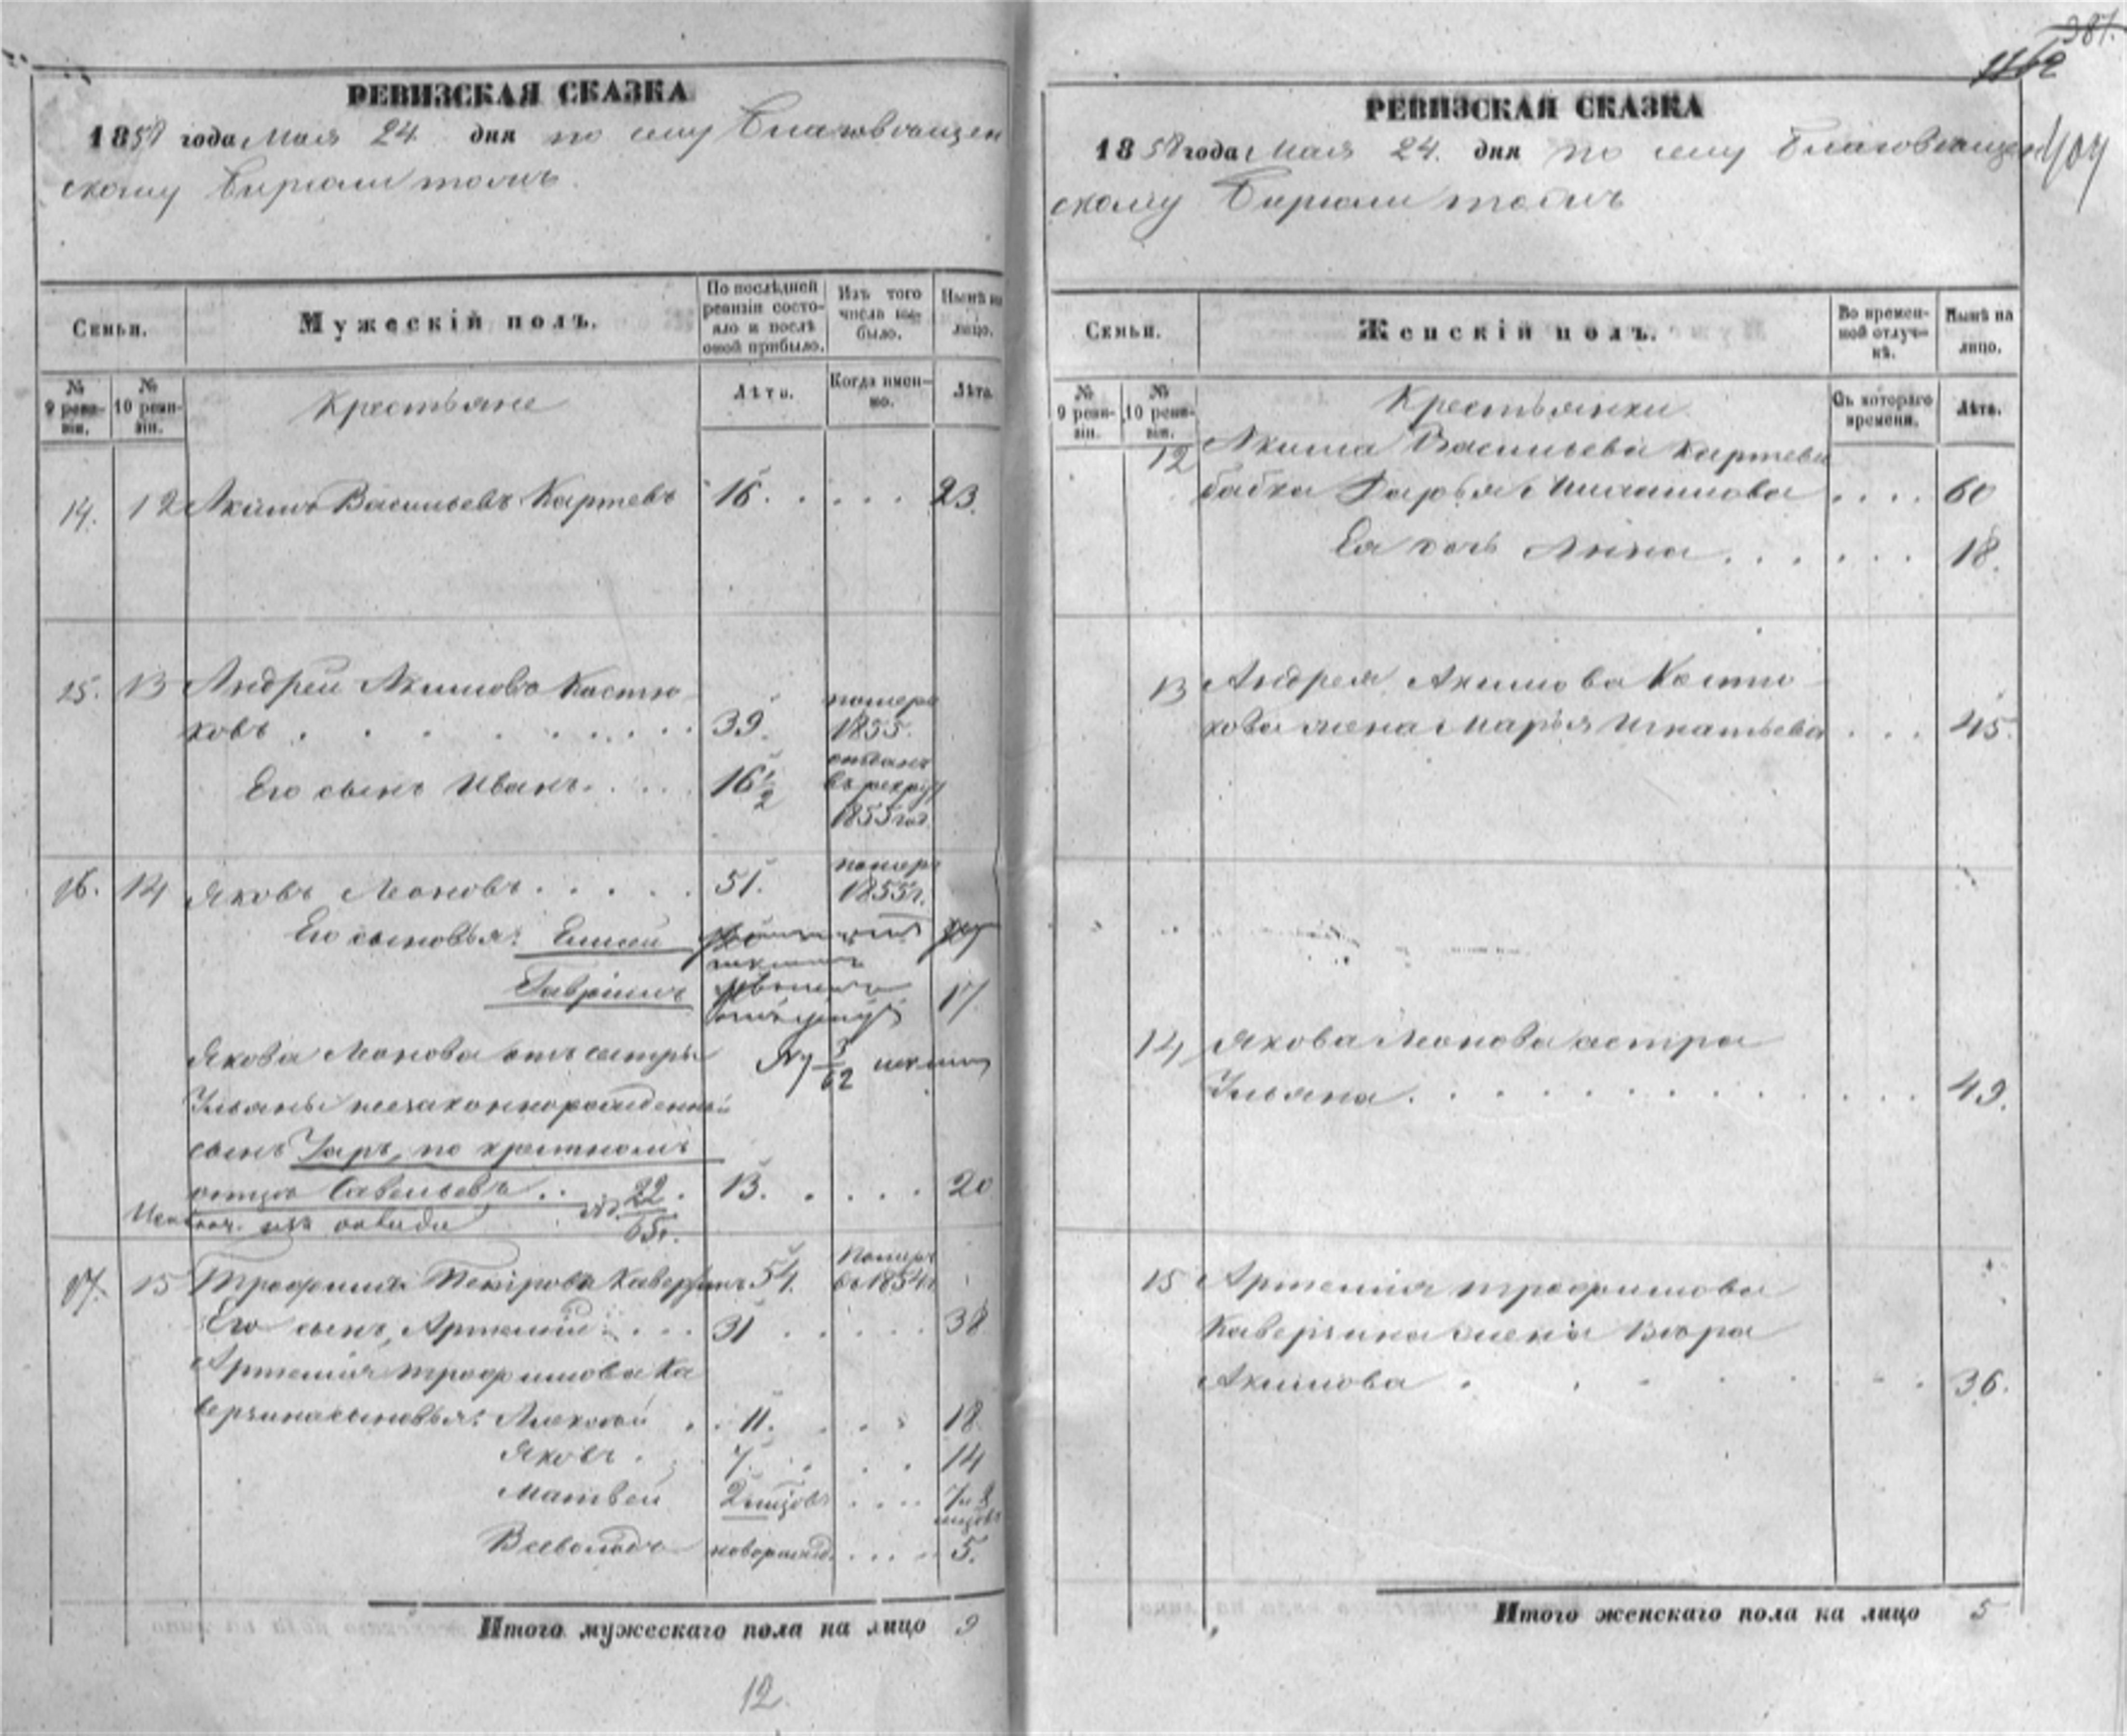 РЕВИЗСКАЯ СКАЗКА
1858 года Мая 24 дня по селу Благовѣщен
скому Бирюли тожъ.
Семьи.
Мужескій полъ.
По послѣдней ревизіи состояло и послѣ оной прибыло.
Изъ того числа выбыло.
Нынѣ на лицо.
№ 9 ревизіи.
№ 10 ревизіи.
Крестьяне
Лѣта.
Когда именно.
Лѣта.
14. 12 Акимъ Васильевъ Картевъ 16. . . . . 23.
25. 13 Андрей Акимовъ Костю
ковъ . . . . . . . . 39. померъ 1855.
Его сынъ Иванъ. . . . 16 1/2 отданъ въ рекруты 1855 год.
16. 14 Яковъ Леоновъ . . . . . 51. померъ 1855 г.
Его сыновья: Елисей
Гаврiилъ 17
Якова Леонова отъ сестры
Ульяны незаконнорожденный № 3/62
сынъ Уаръ, по крестномъ
отцѣ Савельевъ . . 13. . . . . 20
Исключ. изъ оклада № 22/65 г.
17. 15 Трофимъ Петровъ Каверзинъ 54. Померъ въ 1854 г.
Его сынъ, Артемій . . . 31 . . . . . 38
Артемія Трофимова Ка
верзина сыновья: Алексѣй . . 11. . . . 18.
Яковъ . 7. . . . 14
Матвей 2 мѣсяцовъ . . . . 7 и 8 мѣсяцовъ
Всеволодъ новорожд. . . . . 5.
Итого мужескаго пола на лицо 9
12.
387.
1162
404
РЕВИЗСКАЯ СКАЗКА
1858 года Мая 24. дня по селу Благовѣщен
скому Бирюли тожъ
Семьи.
Женскій полъ.
Во временной отлучкѣ.
Нынѣ на лицо.
№ 9 ревизіи.
№ 10 ревизіи.
Крестьянки
Съ котораго времени.
Лѣта.
12 Акима Васильева Картева
бабка Дарья . . . . 60
Ея дочь Анна . . . . . . . 18.
13 Андрея Акимова Костю
кова жена Марья Игнатьева . . . 45.
14 Якова Леонова сестра
Ульяна . . . . . . . . . . . . 49.
15 Артемія Трофимова
Каверзина жена Вѣра
Акимова . . . . . . . 36.
Итого женскаго пола на лицо 5